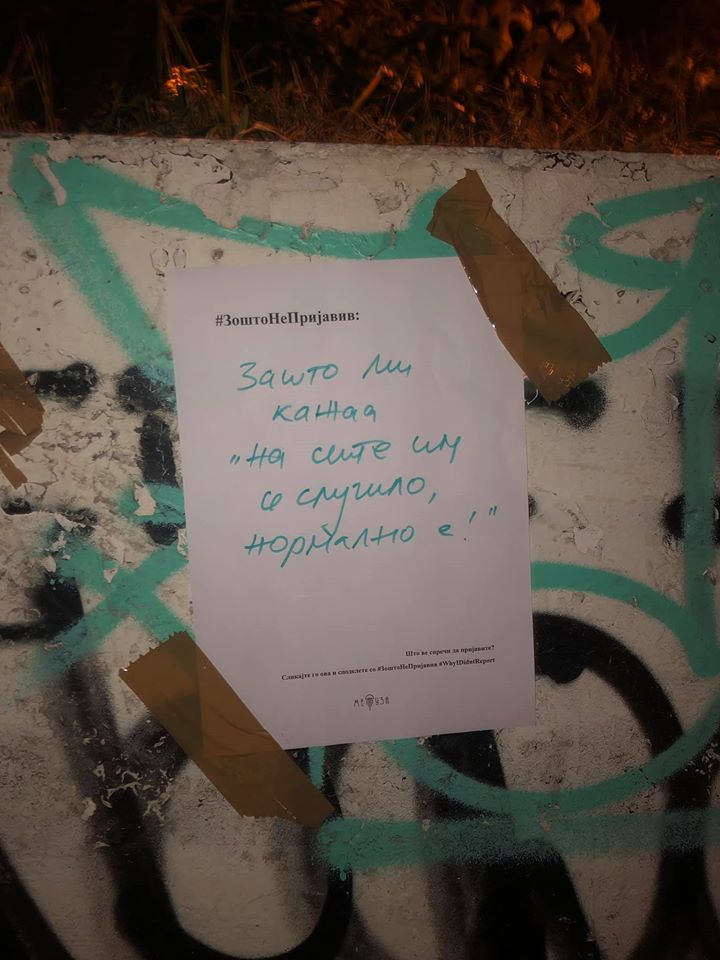 #ЗоштоНеПријавив:
Зашто ми
кажаа
„на сите им
се случило,
нормално е!"
Што ве спречи да пријавите?
Сликајте го ова и споделете со #ЗоштоНеПријавив #WhyIDidntReport
МЕДУЗИ